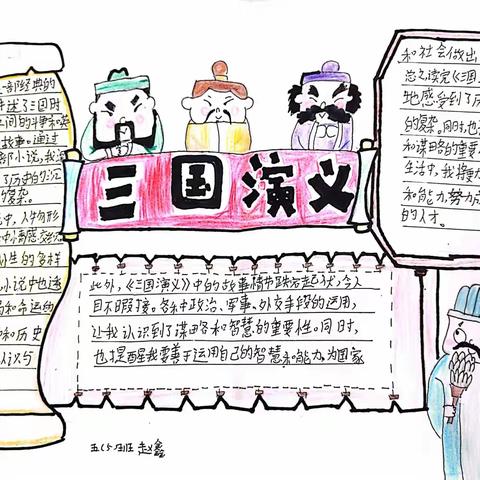 部经典的
述了三国时
之间的斗争和英
故事。通过
部小说,我深
了历史的沉
复杂。
中,人物形
感交织
生的多样
小说中也
和命运的
和历史
认识与
三国演义
此外,《三国演义》中的故事情节跌宕起伏,令人
目不暇接。各种政治、军事、外交手段的运用,
让我认识到了谋略和智慧的重要性。同时,
也提醒我要善于运用自己的智慧和能力,为国家
和社会做出
总之读完《三国
地感受到了历
的复杂。同时,也
和谋略的重要
生活中,我将更
和能力,努力成
的人才。
五(5)班 赵鑫